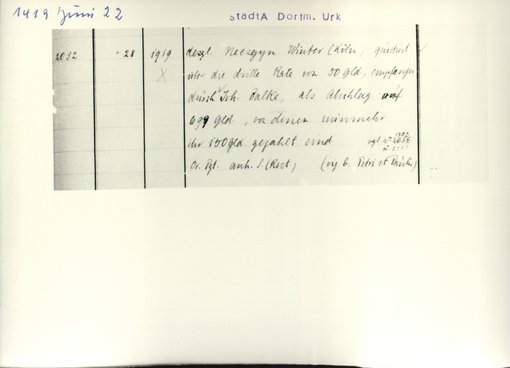 1419 Juni 22
StadtA Dortm. Urk
2012 - 28 1919 desgl. Neezgyn Winter (Köln, quittiert
X über die dritte Rate von 50 gld, empfangen
durch Joh. Palke, als Abschlag auf
699 gld, von denen nunmehr
ihr 150 gld gezahlt sind vgl. No
Or. Pgt. anh. S (Rest) (vig. b. Petri et Pauli)